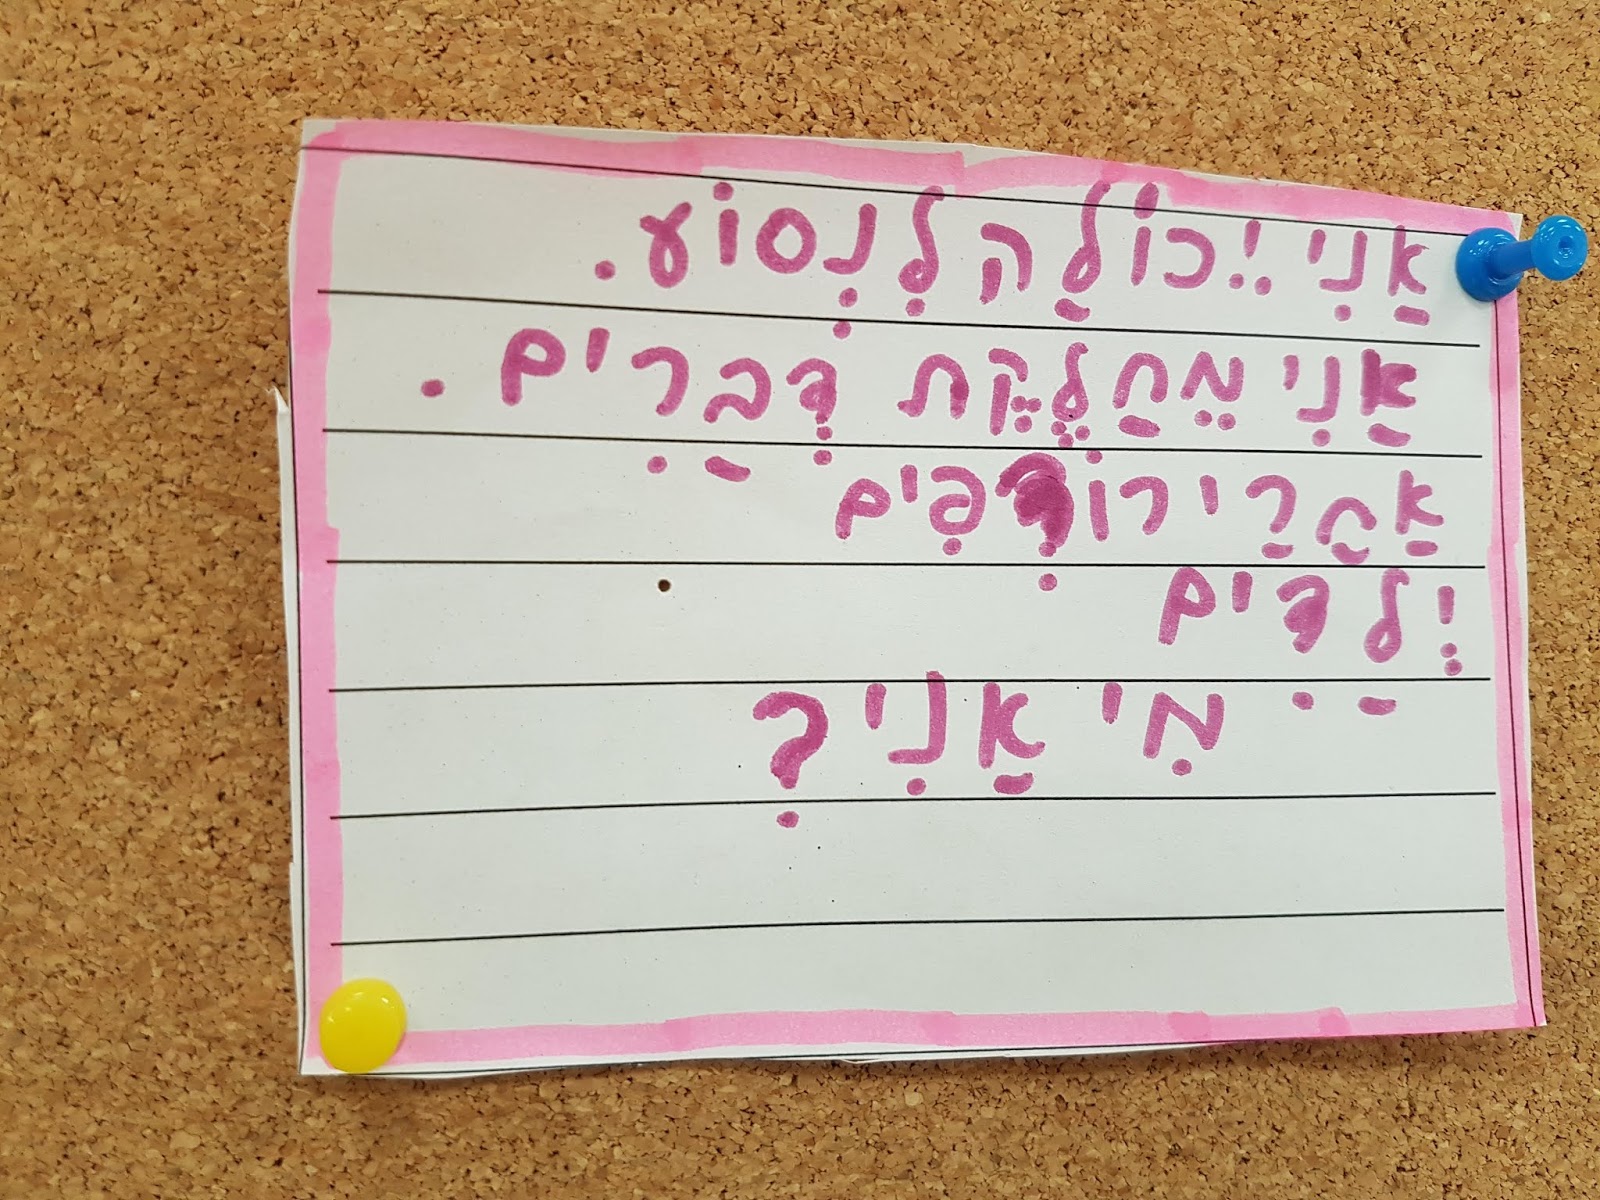 אֲנִי יְכוֹלָה לִנְסוֹעַ.
אֲנִי מֵחַלֶקֶת דְבַרִים.
אַחֲרַי רוֹדְפִים
יֵלַדִים
מִי אֲנִי?